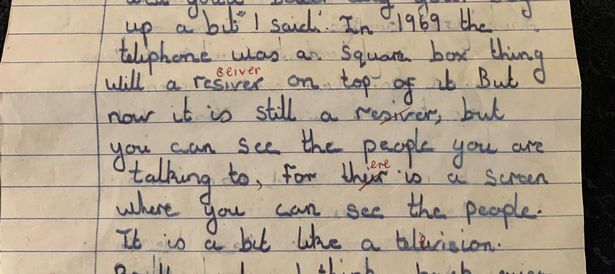 up a bit" I said. In 1969 the
teliphone was a square box thing
ceiver
will a resiver on top of it But
now it is still a resiver, but
you can see the people you are
ere
talking to, for their is a screen
where you can see the people.
It is a bit like a television.